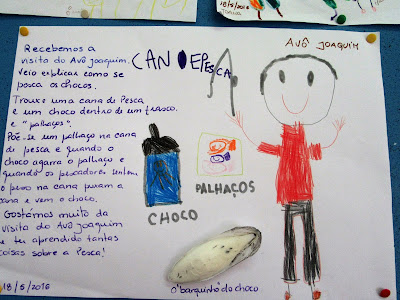 18/5/2016
AVÔ JOAQUIM
Recebemos a
visita do Avô Joaquim.
Veio explicar como se
pesca os chocos.
Trouxe uma cana de Pesca
e um choco dentro de um frasco.
e "palhaços"
Põe-se um palhaço na cana
de pesca e quando o
choco agarra o palhaço e
quando os pescadores sentem
o peso na cana puxam a
cana e vem o choco.
Gostámos muito da
visita do Avô Joaquim
e ter aprendido tantas
coisas sobre a Pesca!
18/5/2016
CANDEPESCA
CHOCO
PALHAÇOS
O barquinho do choco